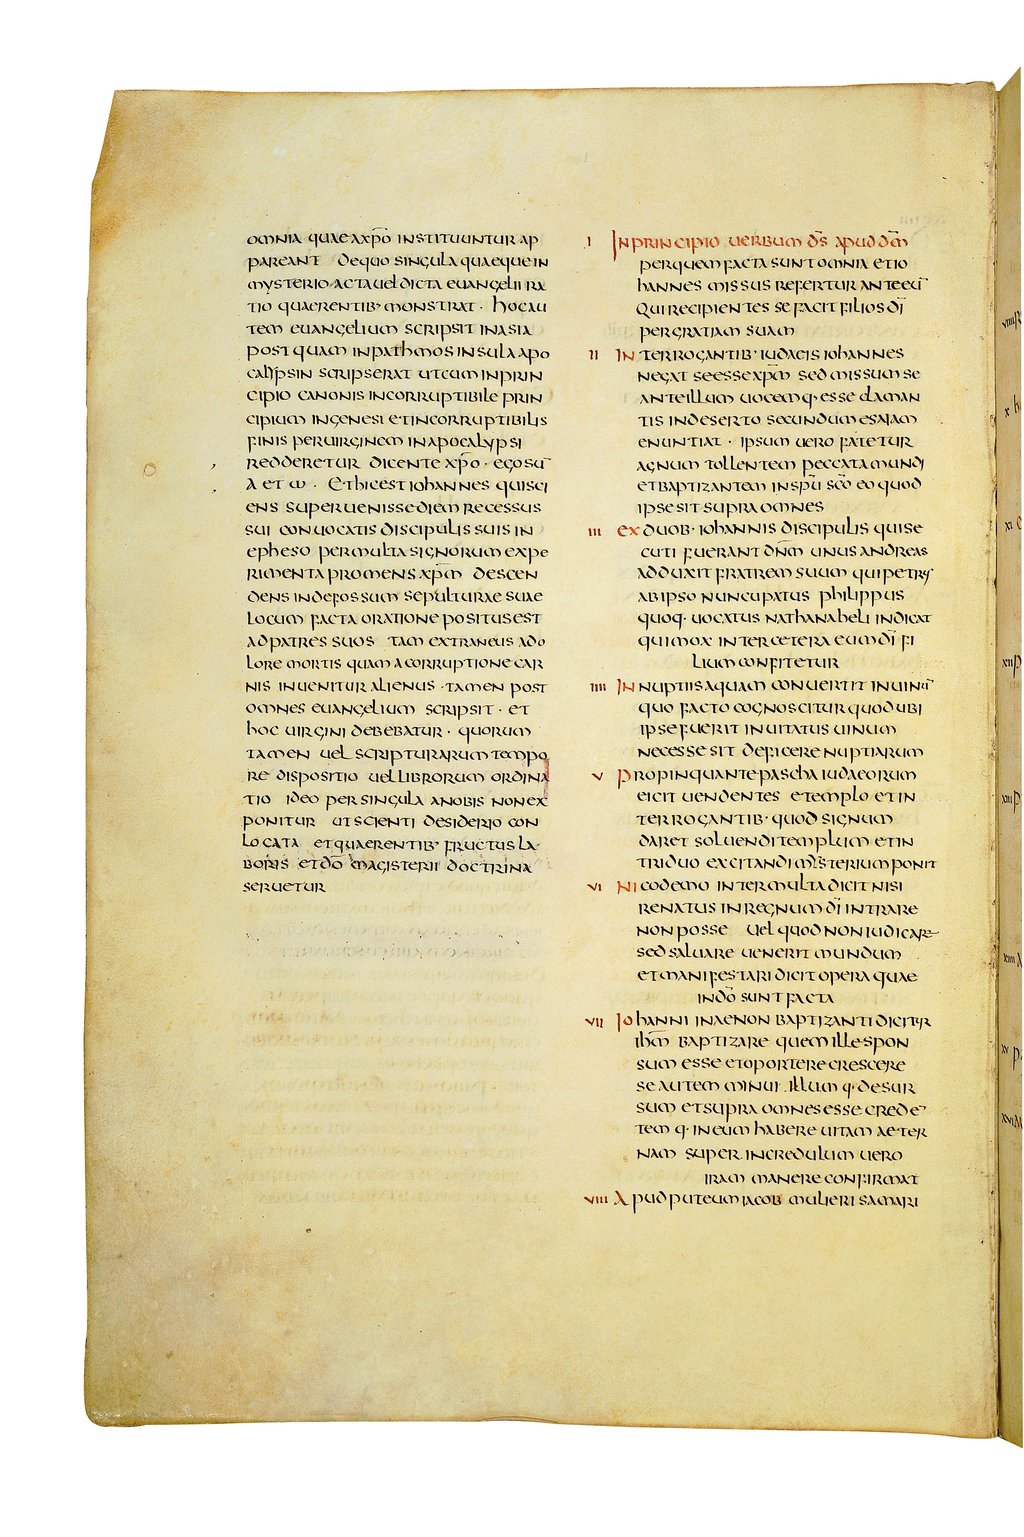 omnia quae a xp̄o instituuntur ap
pareant de quo singula quaeque in
mysterio acta vel dicta euangelii ra
tio quaerentib· monstrat· hoc au
tem euangelium scripsit in asia
postquam in pathmos insula apo
calypsin scripserat ut cum in prin
cipio canonis incorruptibile prin
cipium in genesi et incorruptibilis
finis per uirginem in apocalypsi
redderetur dicente xp̄o · ego sū
α et ω · Et hic est iohannes qui sci
ens superuenisse diem recessus
sui conuocatis discipulis suis in
epheso per multa signorum expe
rimenta promens xp̄m descen
dens in defossum sepulturae suae
locum facta oratione positus est
ad patres suos tam extraneus a do
lore mortis quam a corruptione car
nis inuenitur alienus · tamen post
omnes euangelium scripsit · et
hoc uirgini debebatur · quorum
tamen uel scripturarum tempo
re dispositio uel librorum ordina
tio ideo per singula a nobis non ex
ponitur ut scienti desiderio con
locata et quaerentib· fructus la
boris et dō magisterii doctrina
seruetur
I In principio uerbum d̄s apud d̄m
per quem facta sunt omnia et io
hannes missus refertur ante eū
qui recipientes se facit filios dī
per gratiam suam
II Interrogantib· iudaeis iohannes
negat se esse xp̄m sed missum se
ante illum uocem q· esse claman
tis in deserto secundum esaiam
enuntiat · ipsum uero fatetur
agnum tollentem peccata mundi
et baptizantem in sp̄u sc̄o eo quod
ipse sit supra omnes
III Ex duob· iohannis discipulis qui se
cuti fuerant dn̄m unus andreas
adduxit fratrem suum qui petrus
ab ipso nuncupatus philippus
quoq· uocatus nathanaheli indicat
qui mox inter cetera eum dī fi
lium confitetur
IIII In nuptiis aquam conuertit in uinū
quo facto cognoscitur quod ubi
ipse fuerit inuitatus uinum
necesse sit deficere nuptiarum
V Propinquante pascha iudaeorum
eicit uendentes e templo et in
terrogantib· quod signum
daret soluendi templum et in
triduo excitandi mysterium ponit
VI Nicodemo inter multa dicit nisi
renatus in regnum dī intrare
non posse uel quod non iudicare
sed saluare uenerit mundum
et manifestari dicit opera quae
in dō sunt facta
VII Iohanni in aenon baptizanti dicitur
ih̄m baptizare quem ille spon
sum esse et oportere crescere
se autem minui · illum q· desur
sum et supra omnes esse credē
tem q· in eum habere uitam aeter
nam super incredulum uero
iram manere confirmat
VIII Apud puteum iacob mulieri samari